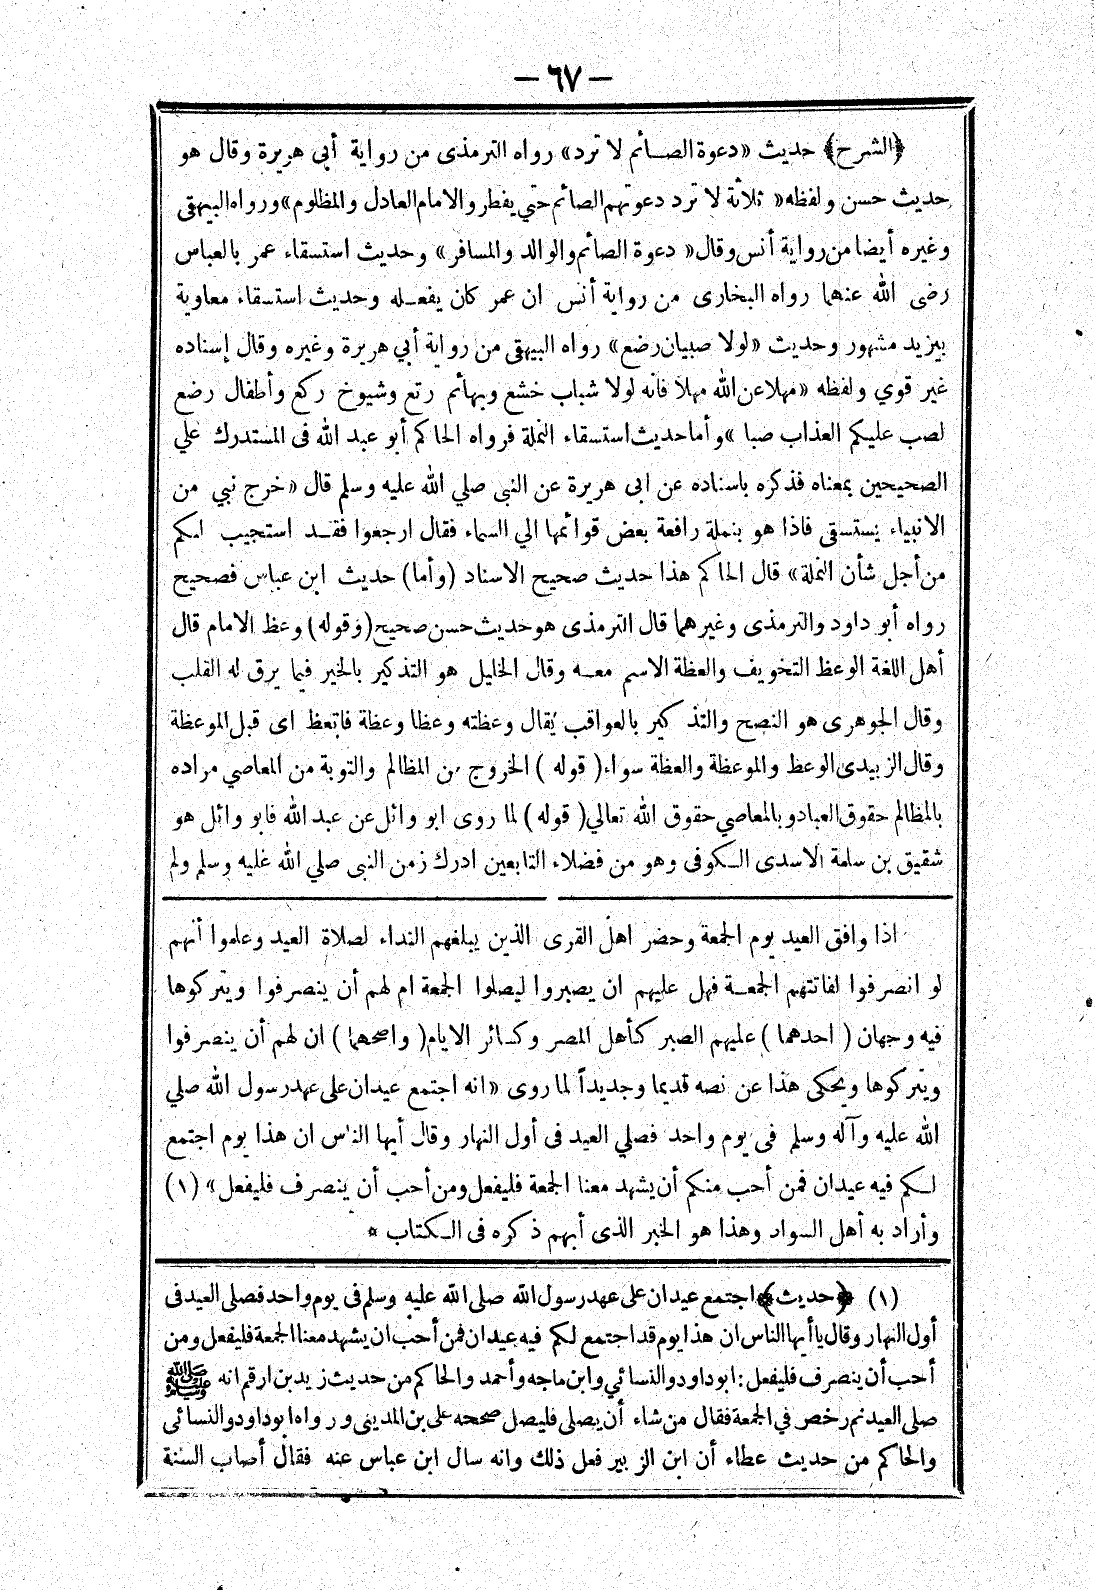 — ٦٧ —
﴿الشرح﴾ حديث «دعوة الصائم لا ترد» رواه الترمذى من رواية أبي هريرة وقال هو
حديث حسن ولفظه« ثلاثة لا ترد دعوتهم الصائم حتي يفطر والامام العادل والمظلوم»ورواه البيهقى
وغيره أيضا من رواية أنس وقال« دعوة الصائم والوالد والمسافر» وحديث استسقاء عمر بالعباس
رضى الله عنهما رواه البخارى من رواية أنس ان عمر كان يفعله وحديث استسقاء معاوية
بيزيد مشهور وحديث «لولا صبيان رضع» رواه البيهقى من رواية أبي هريرة وغيره وقال إسناده
غير قوي ولفظه «مهلا عن الله مهلا فانه لولا شباب خشع وبهائم رتع وشيوخ ركع وأطفال رضع
لصب عليكم العذاب صبا »وأما حديث استسقاء النملة فرواه الحاكم أبو عبد الله فى المستدرك علي
الصحيحين بمعناه فذكره باسناده عن ابى هريرة عن النبى صلي الله عليه وسلم قال «خرج نبي من
الانبياء يستسقى فاذا هو بنملة رافعة بعض قوائمها الي السماء فقال ارجعوا فقد استجيب لكم
من أجل شأن النملة» قال الحاكم هذا حديث صحيح الاسناد (وأما) حديث ابن عباس فصحيح
رواه أبو داود والترمذى وغيرهما قال الترمذى هو حديث حسن صحيح (وقوله) وعظ الامام قال
أهل اللغة الوعظ التخويف والعظة الاسم معه وقال الخليل هو التذكير بالخير فيما يرق له القلب
وقال الجوهرى هو النصح والتذكير بالعواقب يقال وعظته وعظا وعظة فاتعظ اى قبل الموعظة
وقال الزبيدى الوعظ والموعظة والعظة سواء( قوله ) الخروج من المظالم والتوبة من المعاصي مراده
بالمظالم حقوق العباد وبالمعاصي حقوق الله تعالي( قوله ) لما روى ابو وائل عن عبد الله فابو وائل هو
شقيق بن سلمة الاسدى الكوفى وهو من فضلاء التابعين ادرك زمن النبى صلي الله عليه وسلم ولم
اذا وافق العيد يوم الجمعة وحضر اهل القرى الذين يبلغهم النداء لصلاة العيد وعلموا أنهم
لو انصرفوا لفاتتهم الجمعة فهل عليهم ان يصبروا ليصلوا الجمعة ام لهم أن ينصرفوا ويتركوها
فيه وجهان ( احدهما ) عليهم الصبر كأهل المصر وكسائر الايام( واصحهما ) ان لهم أن ينصرفوا
ويتركوها ويحكى هذا عن نصه قديما وجديداً لما روى «انه اجتمع عيدان على عهد رسول الله صلي
الله عليه وآله وسلم فى يوم واحد فصلي العيد فى أول النهار وقال أيها الناس ان هذا يوم اجتمع
لكم فيه عيدان فمن أحب منكم أن يشهد معنا الجمعة فليفعل ومن أحب أن ينصرف فليفعل» (١)
وأراد به أهل السواد وهذا هو الخبر الذى أبهم ذكره فى الكتاب *
(١) ﴿حديث﴾ اجتمع عيدان على عهد رسول الله صلى الله عليه وسلم فى يوم واحد فصلى العيد فى
أول النهار وقال ياأيها الناس ان هذا يوم قد اجتمع لكم فيه عيدان فمن أحب ان يشهد معنا الجمعة فليفعل ومن
أحب أن ينصرف فليفعل: ابوداود والنسائي وابن ماجه وأحمد والحاكم من حديث زيد بن ارقم انه ﷺ
صلى العيد ثم رخص في الجمعة فقال من شاء أن يصلى فليصل صححه على بن المدينى ورواه ابوداود والنسائى
والحاكم من حديث عطاء أن ابن الزبير فعل ذلك وانه سال ابن عباس عنه فقال أصاب السنة